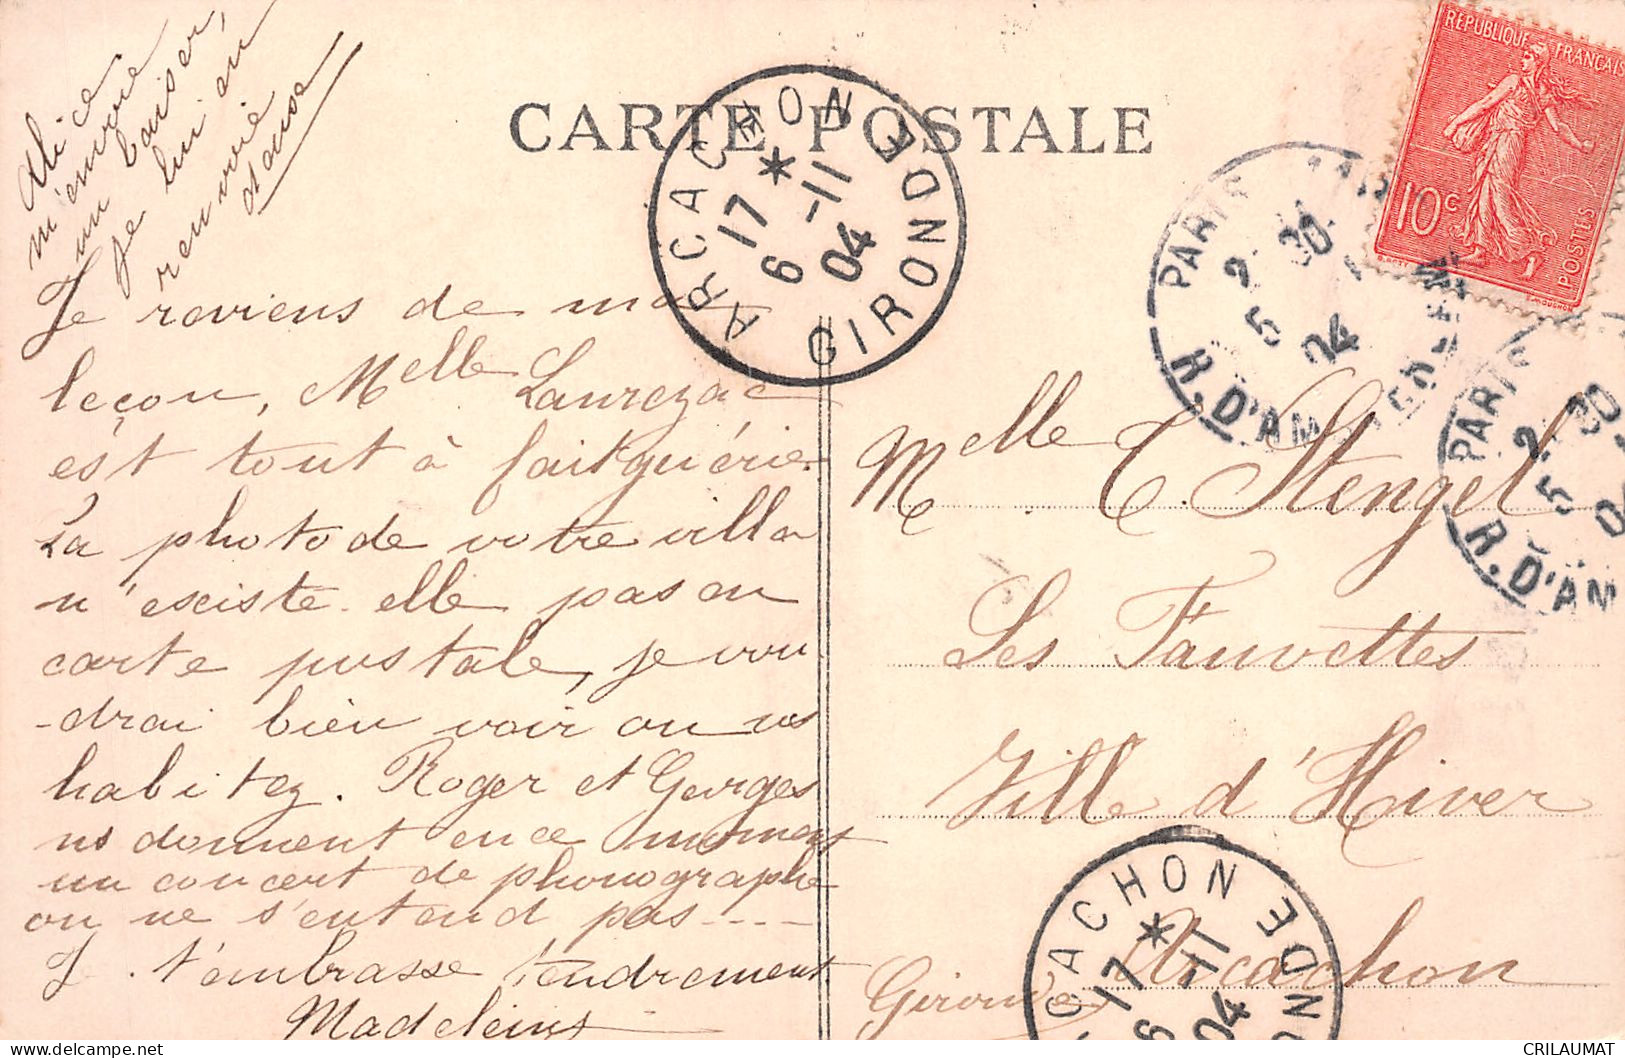 CARTE POSTALE
Alice
m'envoie
un baiser,
je lui en
renvoie
Je reviens de ma
leçon, Melle Laurezac
est tout à fait guérie.
La photo de votre villa
n'existe elle pas en
carte postale, je vou
-drai bien voir ou vs
habitez. Roger et Georges
ns donnent en ce moment
un concert de phonographe
on ne s'entend pas ----
Je t'embrasse tendrement
Madeleine
Melle C. Stengel
Les Fauvettes
Ville d'Hiver
Arcachon
Gironde
REPUBLIQUE FRANÇAISE
10c
POSTES
ARCACHON
GIRONDE
17 *
6 -11
04
PARIS
2 30
5
04
R. D'AM
PARIS
2 30
5 04
R. D'AM
ARCACHON
GIRONDE
17 *
6 -11
04
CRILAUMAT